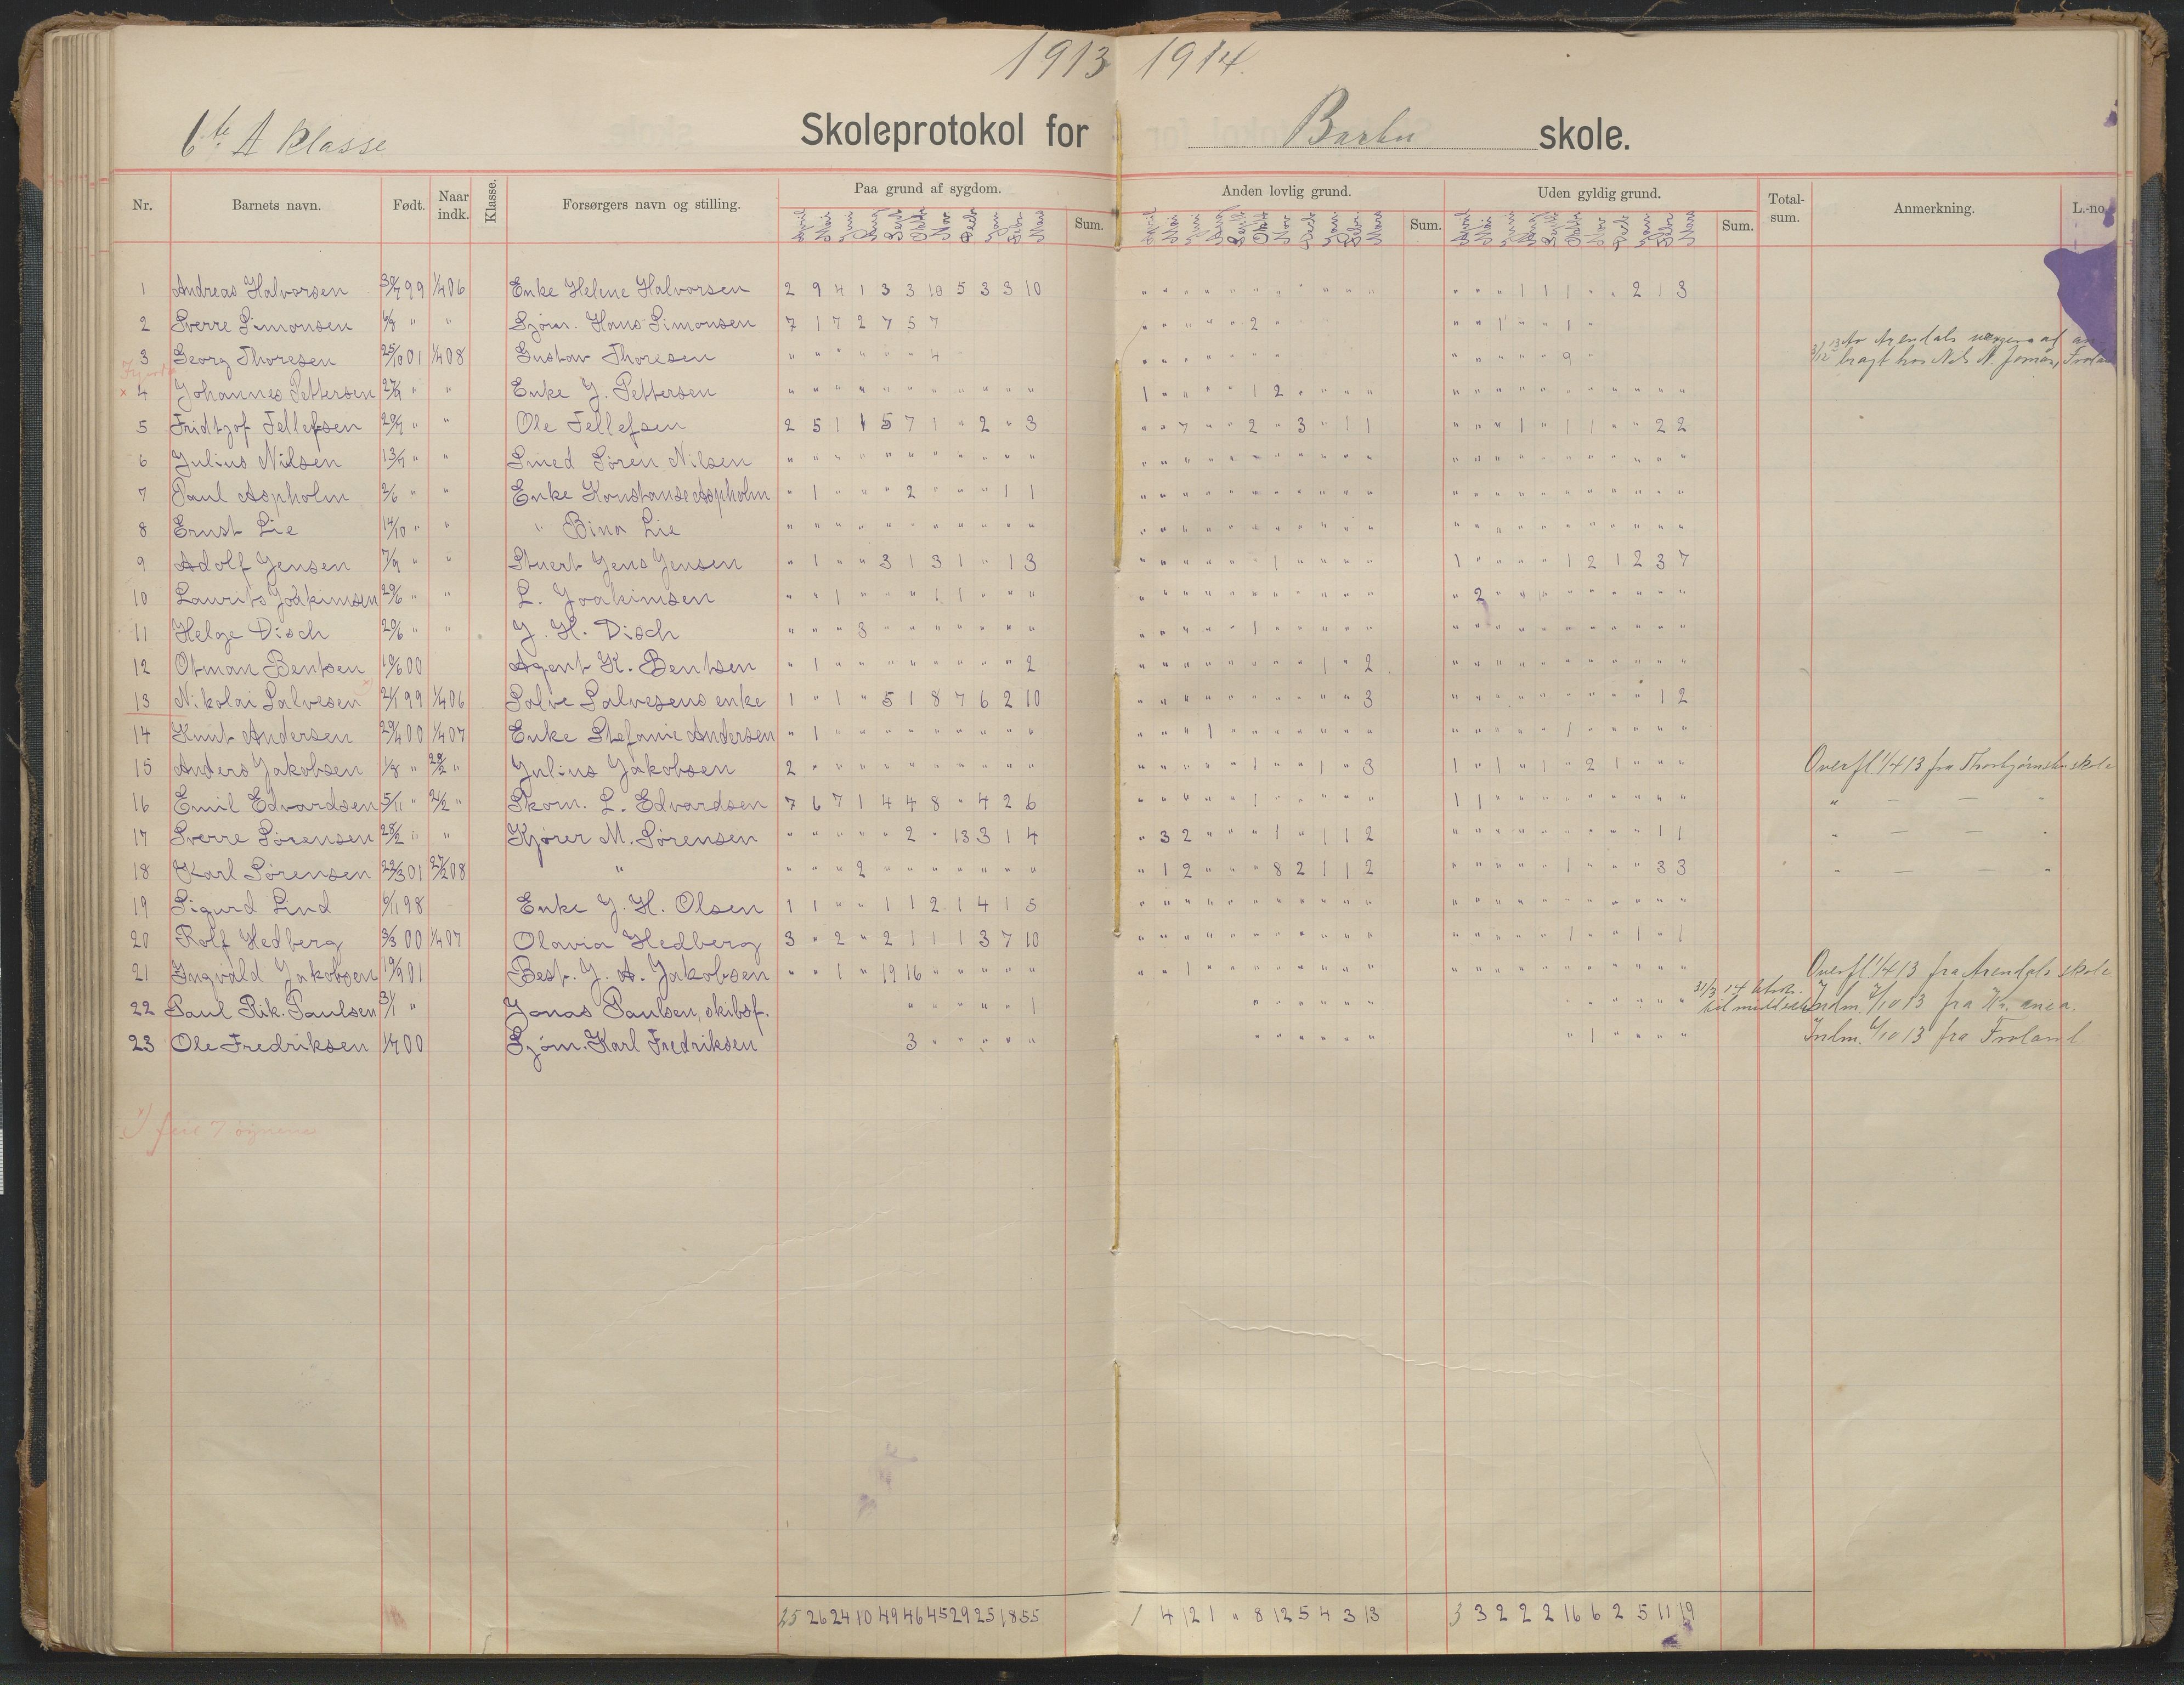 1913 1914.
6te A Klasse Skoleprotokol for Barbu skole.
Nr. Barnets navn. Født. Naar indk. Klasse. Forsørgers navn og stilling. Paa grund af sygdom. Sum. Anden lovlig grund. Sum. Uden gyldig grund. Sum. Total-sum. Anmerkning. L.-no.
April Mai Juni Aug Sept Okt Nov Decb Jan Febr Mars April Mai Juni Aug Sept Okt Nov Decb Jan Febr Mars April Mai Juni Aug Sept Oktb Nov Decb Jan Febr Mars
1 Andreas Halvorsen 30/7 99 1/4 06 Enke Helene Halvorsen 2 9 4 1 3 3 10 5 3 3 10 " " " " " " " " " " " " " " 1 1 1 " " 2 1 3
2 Sverre Simonsen " " Sjøm. Hans Simonsen 7 1 7 2 7 5 7 " " " " " 2 " " " 1 " " 1 "
3 Georg Thoresen 25/10 01 1/4 08 Gustav Thoresen " " " " " " 4 " " " " " " " " " " " " 9 "
4 Johannes Pettersen 27/9 " " Enke J. Pettersen " " " " " " " " " " " 1 " " " " 1 2 " " " " " " " " " " " " " " "
5 Fridtjof Tellefsen 29/9 " " Ole Tellefsen 2 5 1 1 5 7 1 " 2 " 3 " " 7 " " 2 " 3 " 1 1 " " " 1 " 1 1 " " 2 2
6 Julius Nilsen 13/9 " " Smed Søren Nilsen " " " " " " " " " " " " " " " " " " " " " " " " " " " " " " " " "
7 Paul Aspholm 2/6 " " Enke Konstanse Aspholm " 1 " " " 2 " " " 1 1 " " " " " " " " " " " " " " " " " " " " " "
8 Ernst Lie 14/10 " " " Bina Lie " " " " " " " " " " " " " " " " " " " " " " " " " " " " " " " " "
9 Adolf Jensen 7/9 " " Stuert Jens Jensen " 1 " " 3 1 3 1 " 1 3 " " " " " " 1 " " " " 1 " " " " 1 2 1 2 3 7
10 Laurits Joakimsen 29/6 " " L. Joakimsen " " 1 " " " 1 1 " " " " " " " " " " " " " " " 2 " " " " " " " " "
11 Helge Disch 29/6 " " J. H. Disch " " " 3 " " " " " " " " " " " " 1 " " " " " " " " " " " " " " " "
12 Otman Bentsen 19/6 00 Agent K. Bentsen " 1 " " " " " " " " 2 " " " " " " " " 1 " 2 " " " " " " " " " " "
13 Nikolai Salvesen 21/1 99 1/4 06 Salve Salvesens enke 1 " 1 " 5 1 8 7 6 2 10 " " " " " " " " " " 3 " " " " " " " " " 1 2
14 Knut Andersen 29/4 00 1/4 07 Enke Stefanie Andersen " 1 " " " " " " " " " " " " 1 " " " " " " " " " " " " 1 " " " " "
15 Anders Jakobsen 1/8 " " Julius Jakobsen 2 " " " " " " " " " " " " " " " 1 " " 1 " 3 1 " 1 " 1 " 2 1 " " " Overfl 1/4 13 fra Thorbjørnsbu skole
16 Emil Edvardsen 5/11 " 2/2 " Skom. L. Edvardsen 7 6 7 1 4 4 8 " 4 2 6 " " " " " 1 " " " " " 1 1 " " " " " " " " " " — — "
17 Sverre Sørensen 28/2 " " Kjører M. Sørensen " " " " " 2 " 13 3 1 4 " 3 2 " " " 1 " 1 1 2 " " " " " " " " " 1 1 " — — "
18 Karl Sørensen 22/3 01 27/2 08 " " " " 2 " " " " " " " " 1 2 " " " 8 2 1 1 2 " " " " " 1 " " " 3 3 " — — "
19 Sigurd Lind 6/1 98 Enke J. H. Olsen 1 1 " " 1 1 2 1 4 1 5 " " " " " " " " " " " " " " " " " " " " " "
20 Rolf Hedberg 3/3 00 1/4 07 Olavia Hedberg 3 " 2 " 2 1 1 1 3 7 10 " " " " " " " " " " " " " " " " 1 " " 1 " 1
21 Ingvald Jakobsen 19/9 01 Best. J. A. Jakobsen " " 1 " 19 16 " " " " " " " 1 " " " " " " " " " " " " " " " " " " " Overfl 1/4 13 fra Arendals skole
22 Paul Rik. Paulsen 3/1 " Jonas Paulsen, skibsf. " " " " " 1 " " " " " " " " " " " " 31/3 14 til middelsk. Indm. 1/10 13 fra Kr.ania.
23 Ole Fredriksen 1/7 00 Sjøm. Karl Fredriksen 3 " " " " " " " " " " " " 1 " " " " Indm. 6/10 13 fra Froland
25 26 24 10 49 46 45 29 25 18 55 1 4 12 1 " 8 12 5 4 3 13 3 3 2 2 2 16 6 2 5 11 19